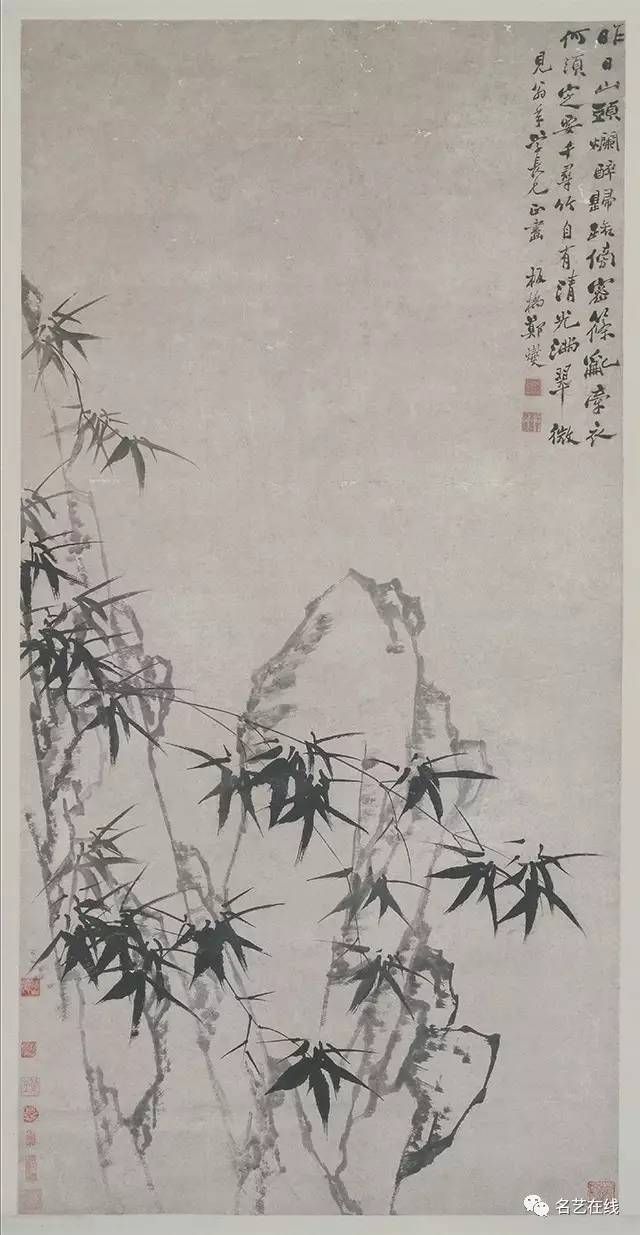 昨日山頭爛醉歸路傍密篠亂牽衣
何須定要千尋竹自有清光滿翠微
見翁年學長兄正畫 板橋鄭燮
名艺在线